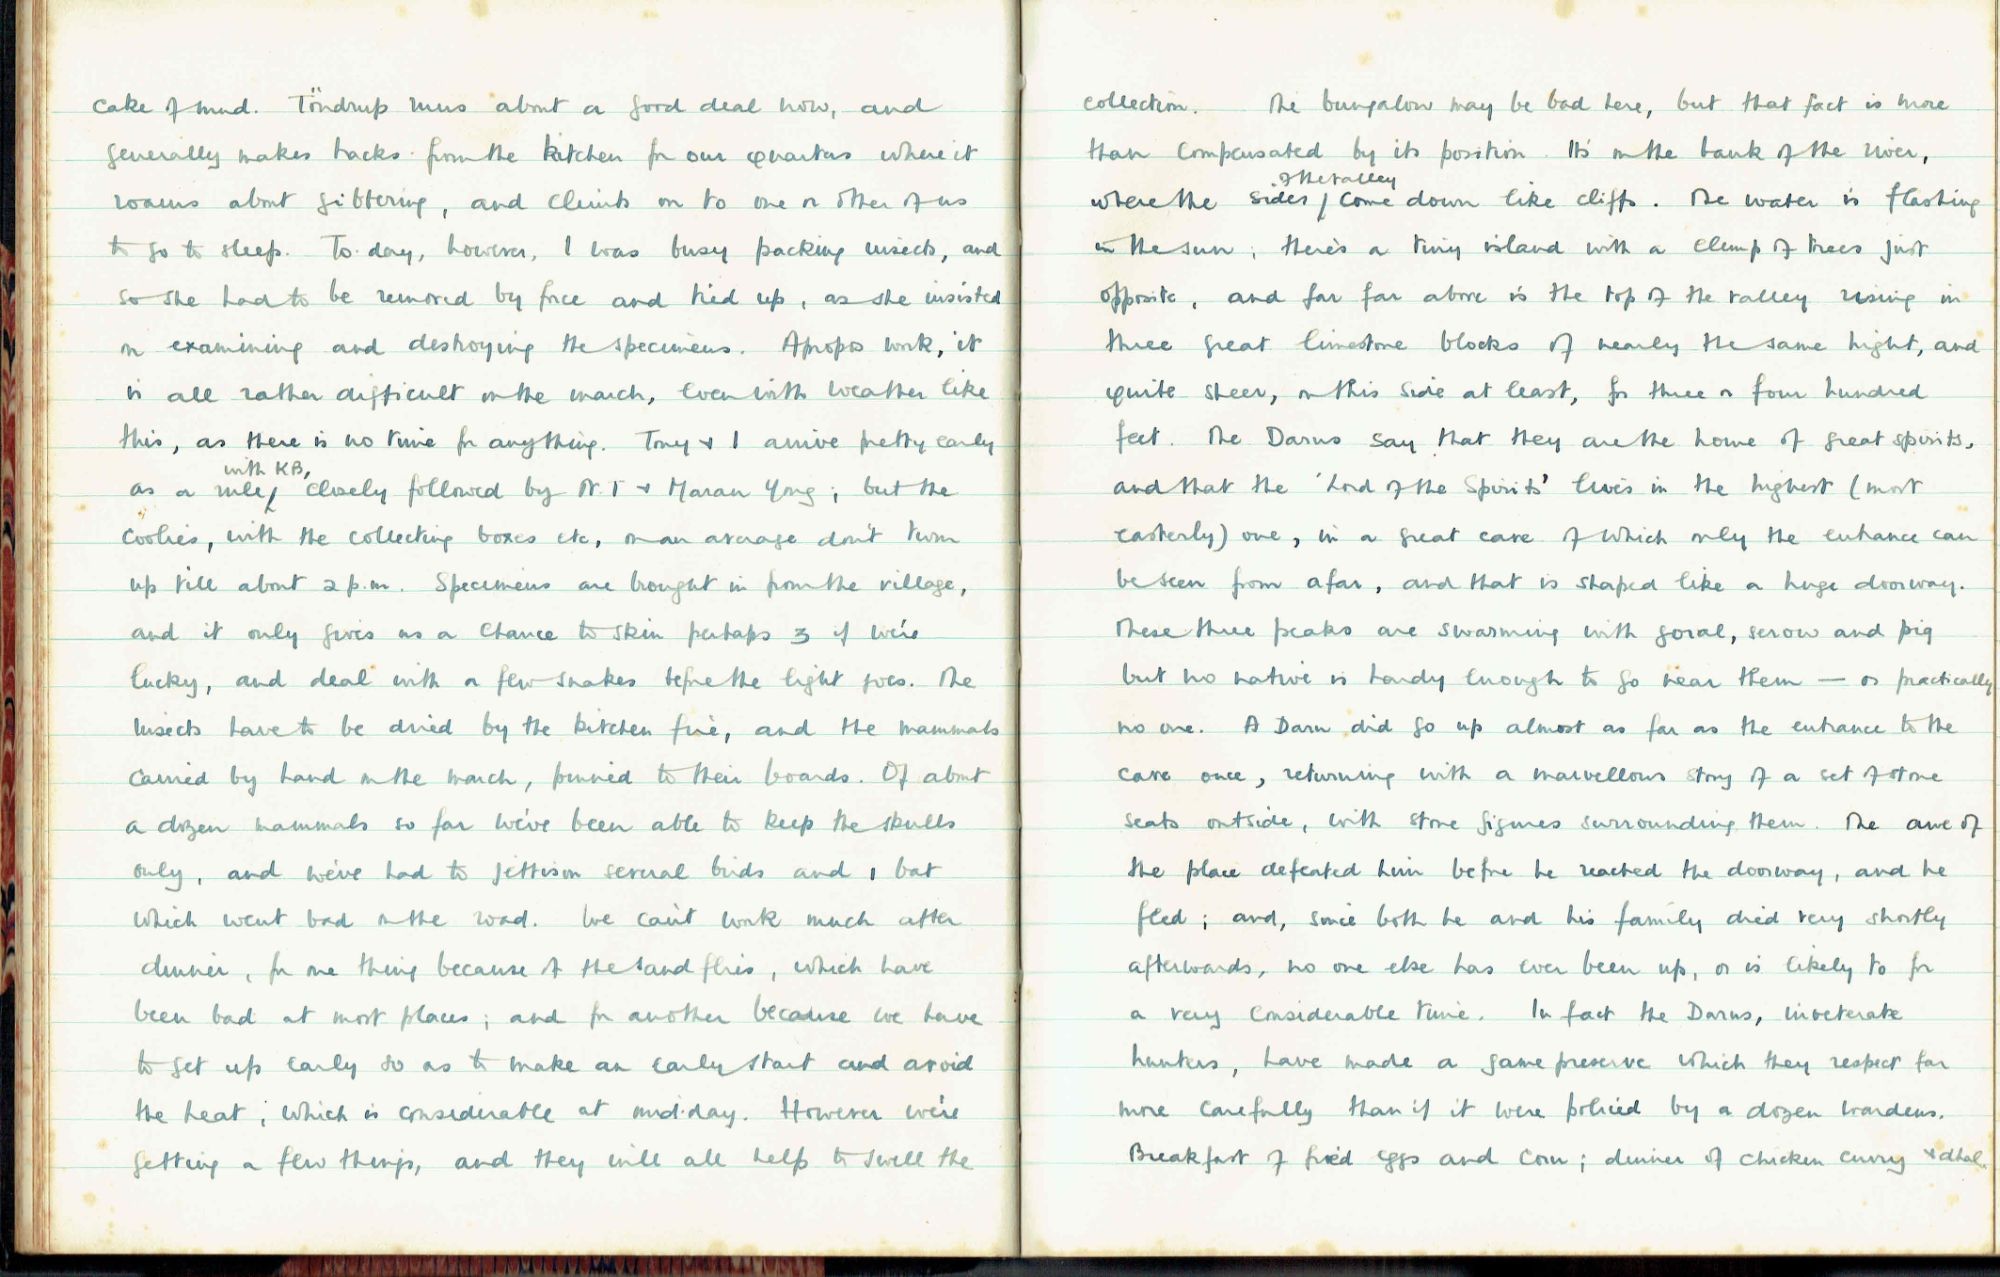 cake of mud. Töndrup runs about a good deal now, and
generally makes tracks from the kitchen for our quarters where it
roams about gibbering, and climbs on to one or other of us
to go to sleep. To-day, however, I was busy packing insects, and
so she had to be removed by force and tied up, as she insisted
on examining and destroying the specimens. Apropos work, it
is all rather difficult on the march, even with weather like
this, as there is no time for anything. Tony & I arrive pretty early
as a rule, with KB, closely followed by N.T & Maran Yong; but the
coolies, with the collecting boxes etc, on an average don't turn
up till about 2 p.m. Specimens are brought in from the village,
and it only gives us a chance to skin perhaps 3 if we're
lucky, and deal with a few snakes before the light goes. The
insects have to be dried by the kitchen fire, and the mammals
carried by hand on the march, pinned to their boards. Of about
a dozen mammals so far we've been able to keep the skulls
only, and we've had to jettison several birds and 1 bat
which went bad on the road. We can't work much after
dinner, for one thing because of the sandflies, which have
been bad at most places; and for another because we have
to get up early so as to make an early start and avoid
the heat; which is considerable at mid-day. However we're
getting a few things, and they will all help to swell the
collection. The bungalow may be bad here, but that fact is more
than compensated by its position. It's on the bank of the river,
where the sides of the valley come down like cliffs. The water is flashing
in the sun; there's a tiny island with a clump of trees just
opposite, and far far above is the top of the valley rising in
three great limestone blocks of nearly the same hight, and
quite sheer, on this side at least, for three or four hundred
feet. The Darus say that they are the home of great spirits,
and that the 'Lord of the Spirits' lives in the highest (most
easterly) one, in a great cave of which only the entrance can
be seen from afar, and that is shaped like a huge doorway.
These three peaks are swarming with goral, serow and pig
but no native is hardy enough to go near them — or practically
no one. A Daru did go up almost as far as the entrance to the
cave once, returning with a marvellous story of a set of stone
seats outside, with stone figures surrounding them. The awe of
the place defeated him before he reached the doorway, and he
fled; and, since both he and his family died very shortly
afterwards, no one else has ever been up, or is likely to for
a very considerable time. In fact the Darus, inveterate
hunters, have made a game preserve which they respect far
more carefully than if it were policed by a dozen wardens.
Breakfast of fried eggs and corn; dinner of chicken curry & dhal.